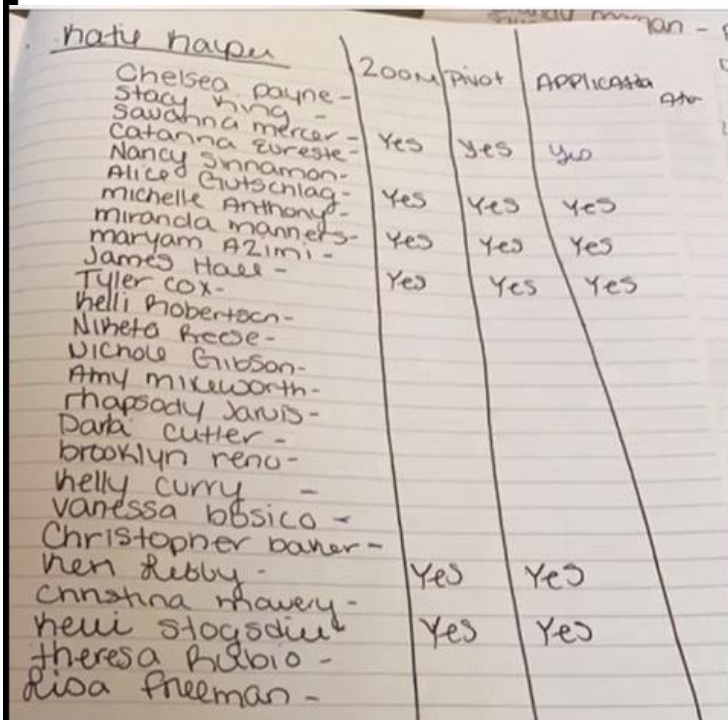 man -
Katie Harper
ZOOM Pivot Application
Chelsea payne -
Stacy King -
Savanna mercer -
Catanna Eureste - Yes yes yes
Nancy Sinnamon -
Alice Gutschlag -
michelle Anthony - Yes Yes Yes
miranda manners -
maryam Azimi - Yes Yes Yes
James Hall -
Tyler cox - Yes Yes Yes
Kelli Robertson -
Niketa Reese -
Nichole Gibson -
Amy mikeworth -
rhapsody Jarvis -
Darla cutter -
brooklyn reno -
Kelly curry -
vanessa bosico -
Christopher baker -
Ken - Yes Yes
Christina mavery -
Kelli Stogsdill Yes Yes
theresa Rubio -
Lisa freeman -